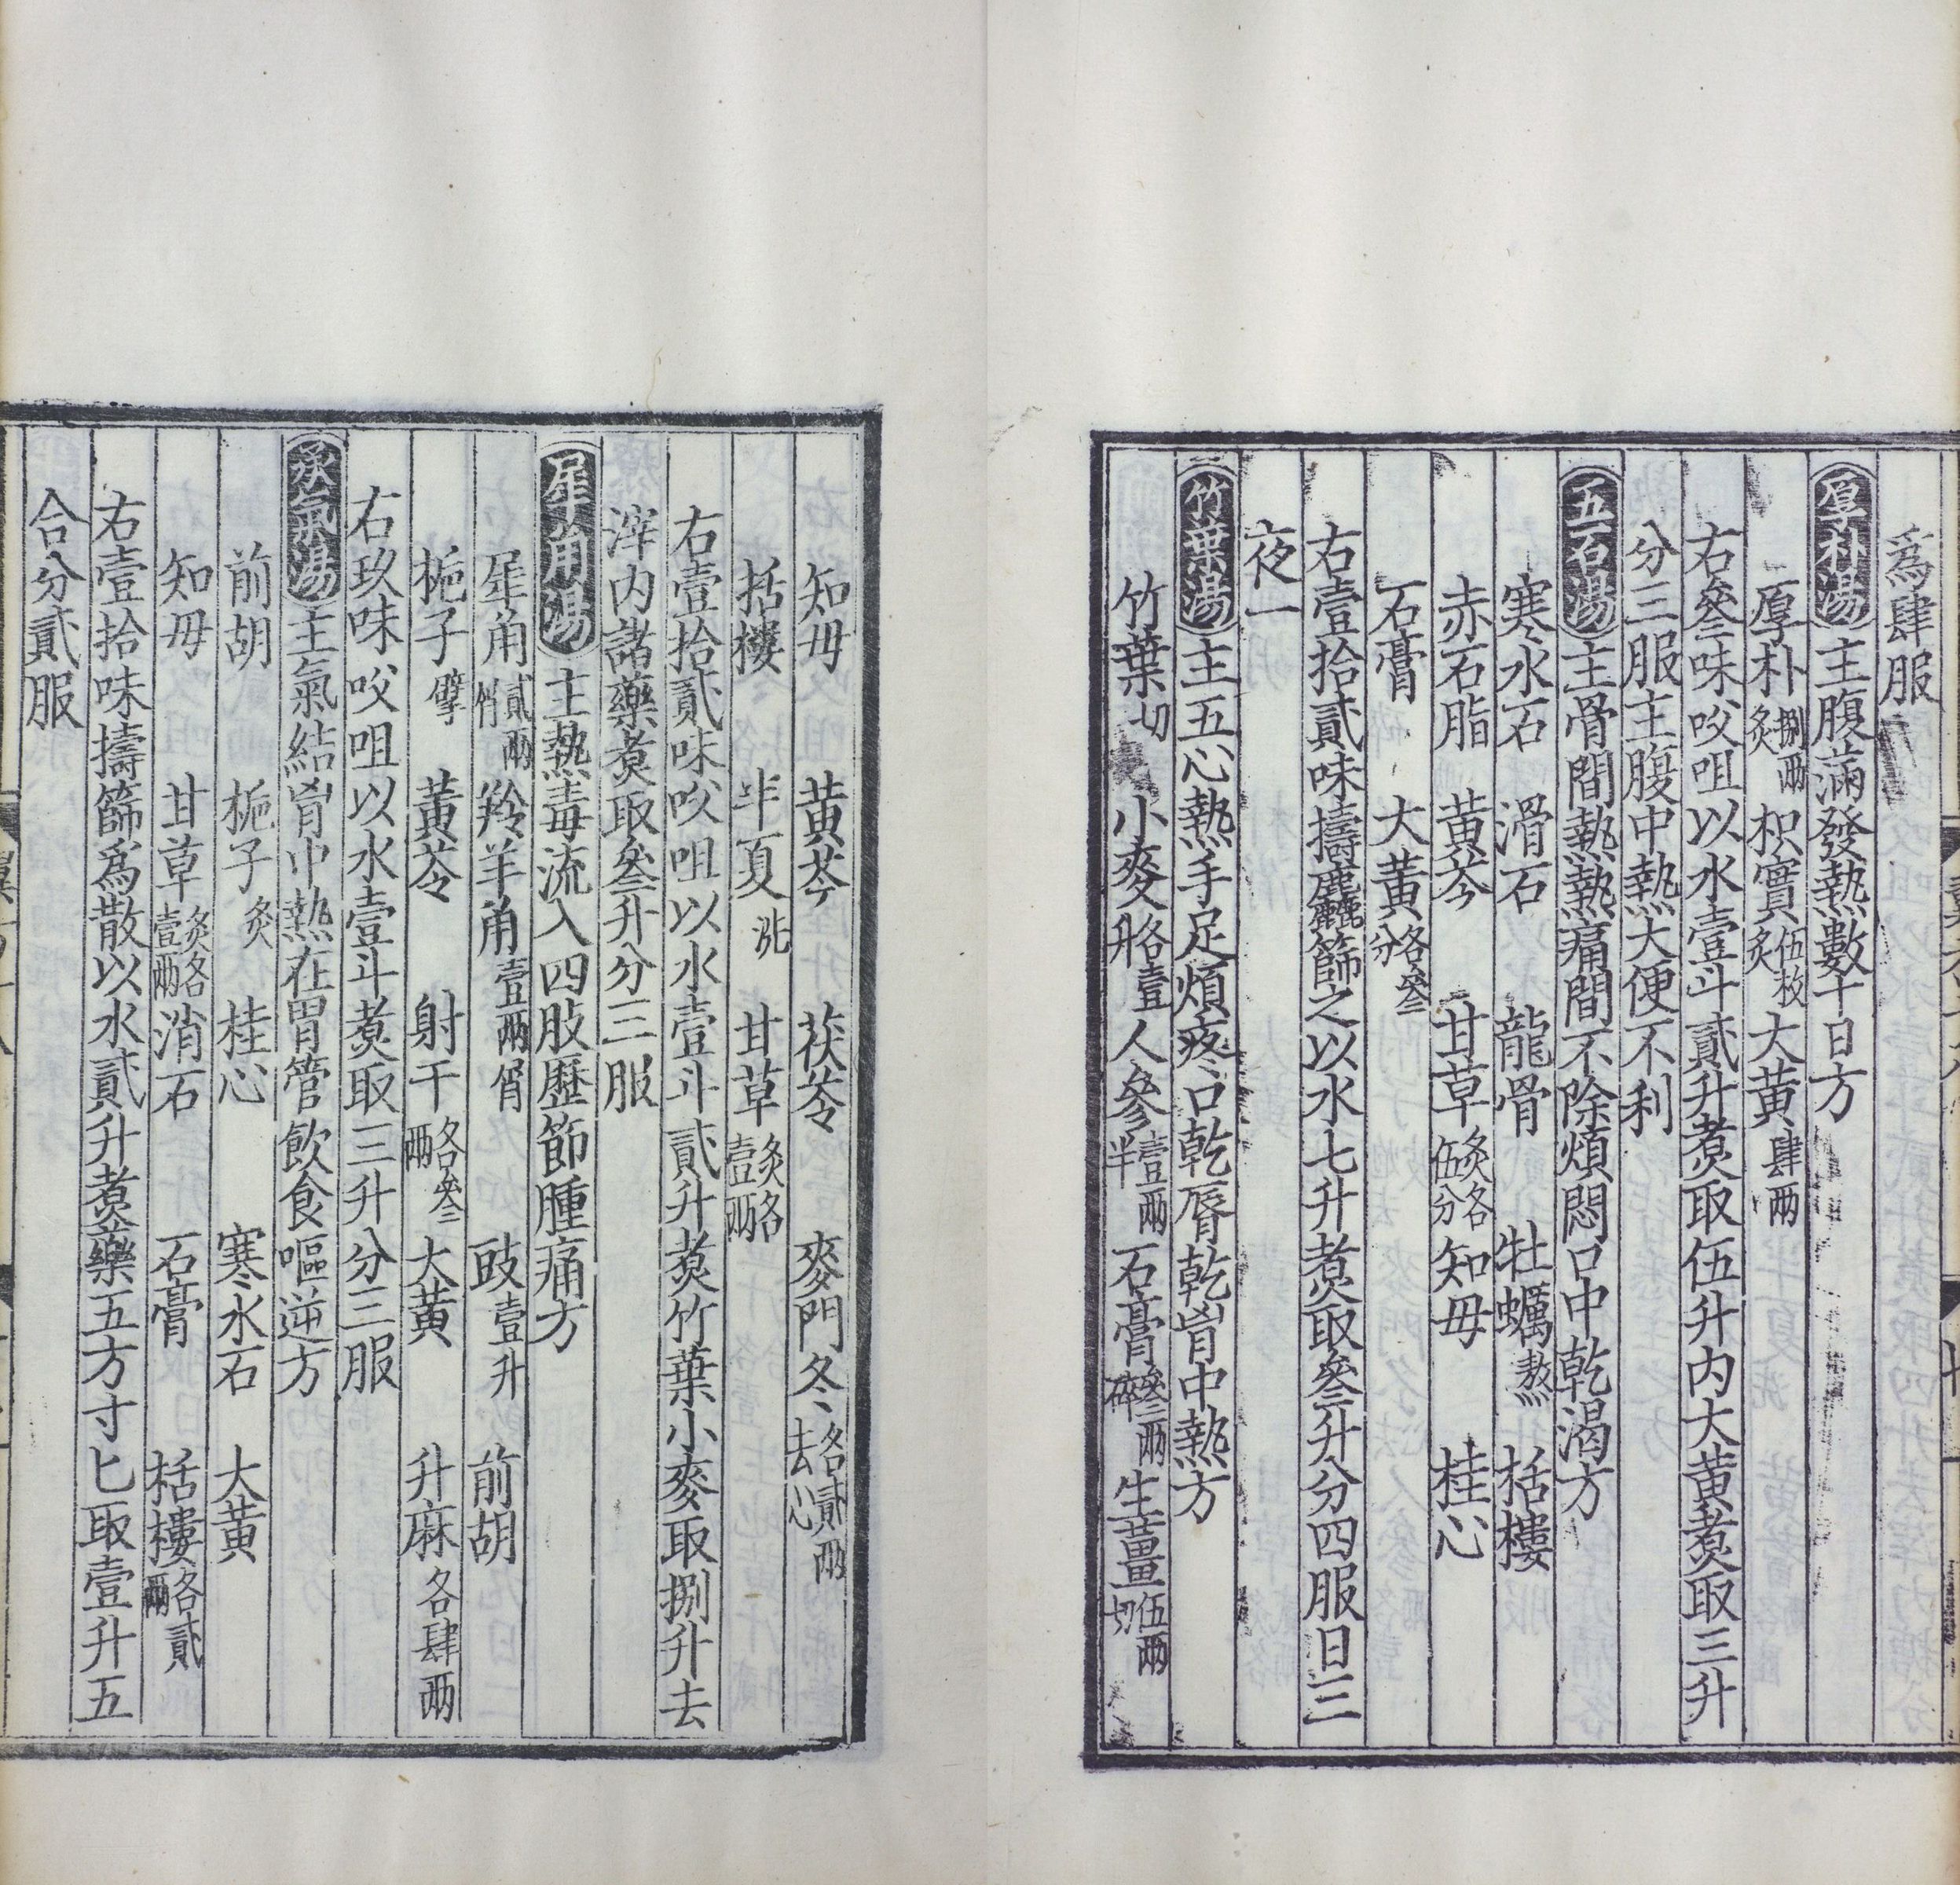 爲肆服
厚朴湯主腹滿發熱數十日方
厚朴捌兩炙枳實伍枚炙大黃肆兩
右叄味㕮咀以水壹斗貳升煑取伍升内大黃煑取三升
分三服主腹中熱大便不利
五石湯主骨間熱熱痛間不除煩悶口中乾渴方
寒水石 滑石 龍骨 牡蠣熬 栝樓
赤石脂 黃芩 甘草炙各伍分知母 桂心
石膏 大黃各叄分
右壹拾貳味擣麤篩之以水七升煑取叄升分四服日三
夜一
竹葉湯主五心熱手足煩疼口乾脣乾胷中熱方
竹葉切 小麥各壹升人參壹兩半石膏叄兩碎生薑伍兩切
知母 黃芩 茯苓 麥門冬各貳兩去心
栝樓 半夏洗 甘草炙各壹兩
右壹拾貳味㕮咀以水壹斗貳升煑竹葉小麥取捌升去
滓内諸藥煑取叄升分三服
犀角湯主熱毒流入四肢歷節腫痛方
犀角貳兩屑羚羊角壹兩屑 豉壹升 前胡
梔子擘 黃芩 射干各叄兩大黃 升麻各肆兩
右玖味㕮咀以水壹斗煑取三升分三服
承氣湯主氣結胷中熱在胃管飲食嘔逆方
前胡 梔子炙 桂心 寒水石 大黃
知母 甘草炙各壹兩消石 石膏 栝樓各貳兩
右壹拾味擣篩爲散以水貳升煑藥五方寸匕取壹升五
合分貳服